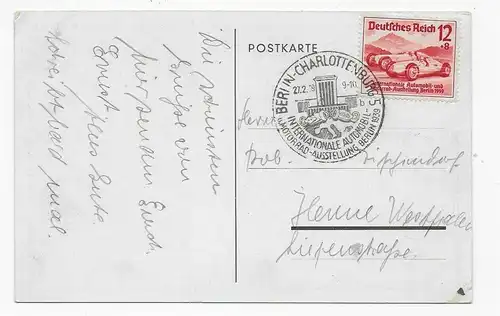 Die schönsten
Grüße von
hier senden Euch
Ernst,
schreibt bald mal.
POSTKARTE
Deutsches Reich 12
+8
Internationale Automobil- und
Motorrad-Ausstellung Berlin 1939
BERLIN-CHARLOTTENBURG 5
27.2.39 9-10
b
INTERNATIONALE AUTOMOBIL-
U. MOTORRAD-AUSSTELLUNG BERLIN 1939
Herrn
Rob.
Herne Westfalen